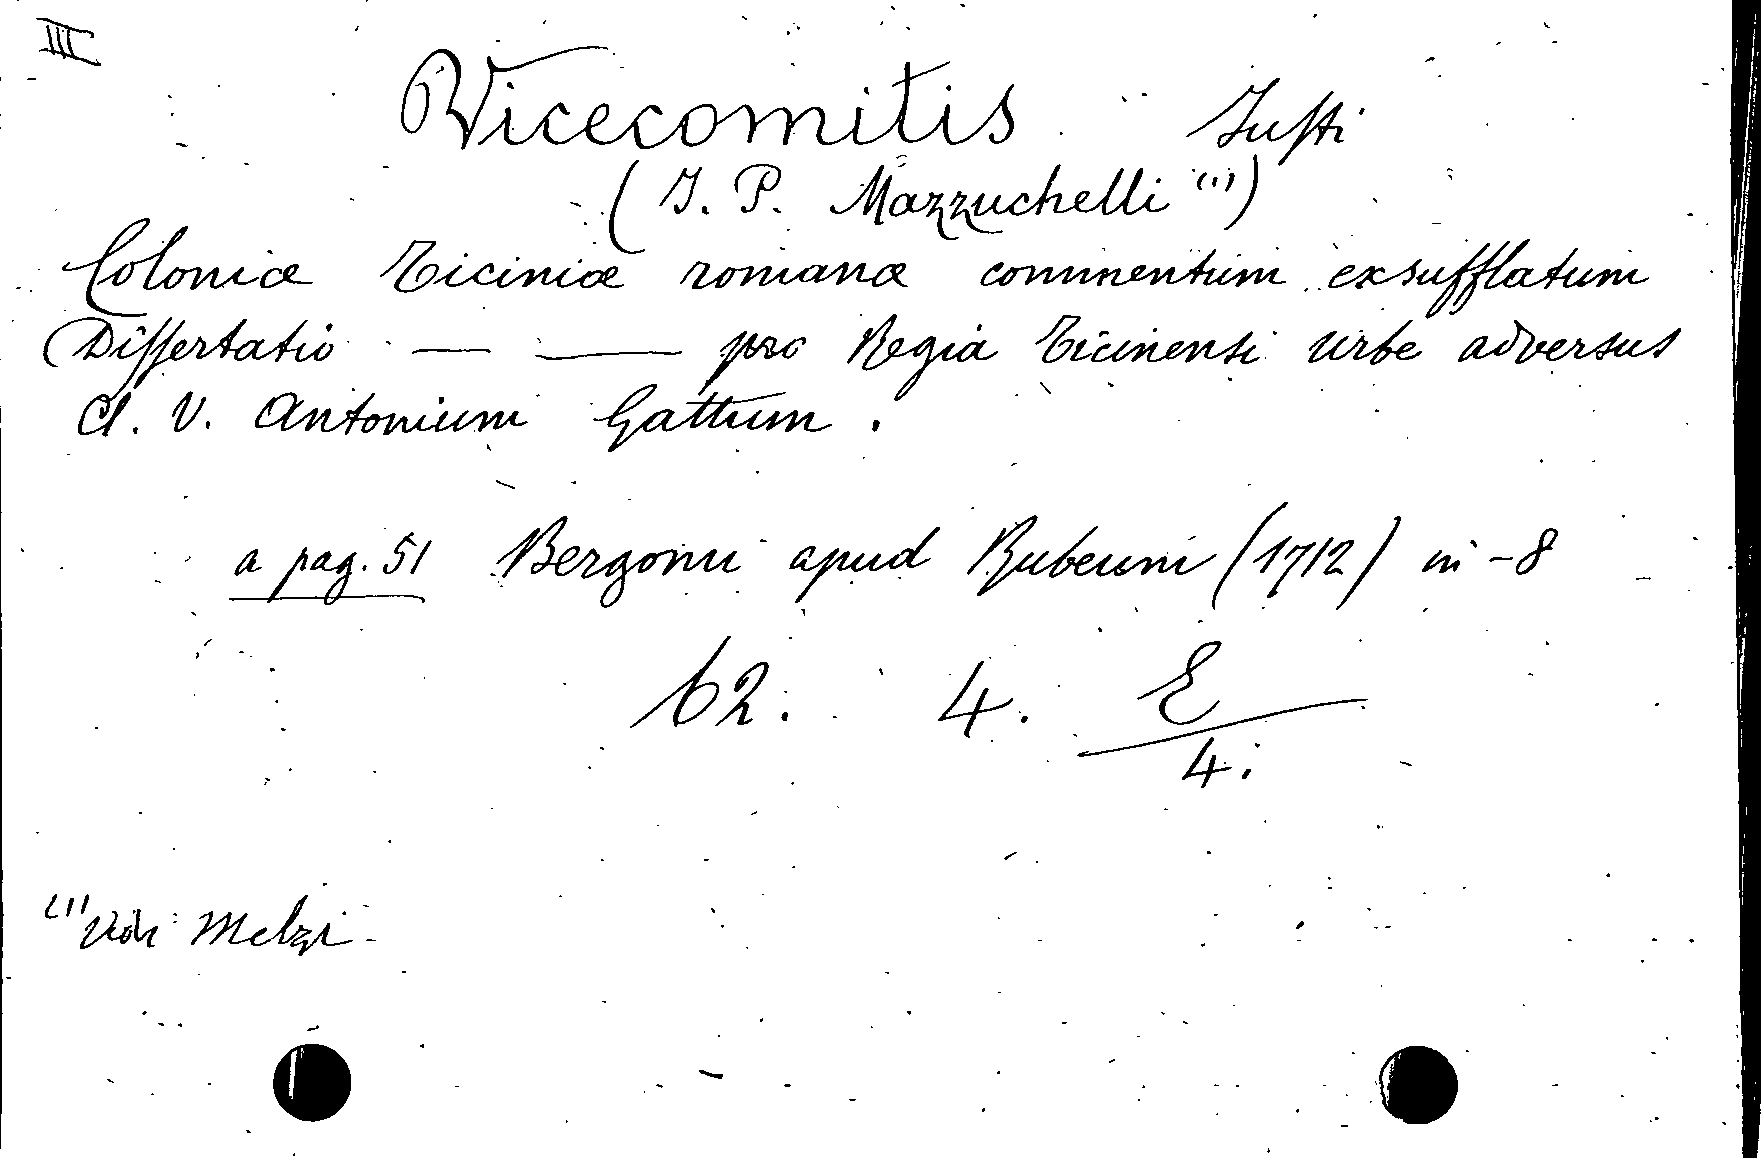 III
Vicecomitis Justi
(J. P. Mazzuchelli (1))
Coloniæ Ticiniæ romanæ commentum exsufflatum
Dissertatio — — pro Regia Ticinensi Urbe adversus
Cl. V. Antonium Gattum.
a pag. 51 Bergomi apud Rubeum (1712) in-8
62. 4. E
4.
(1) Vidi Melzi